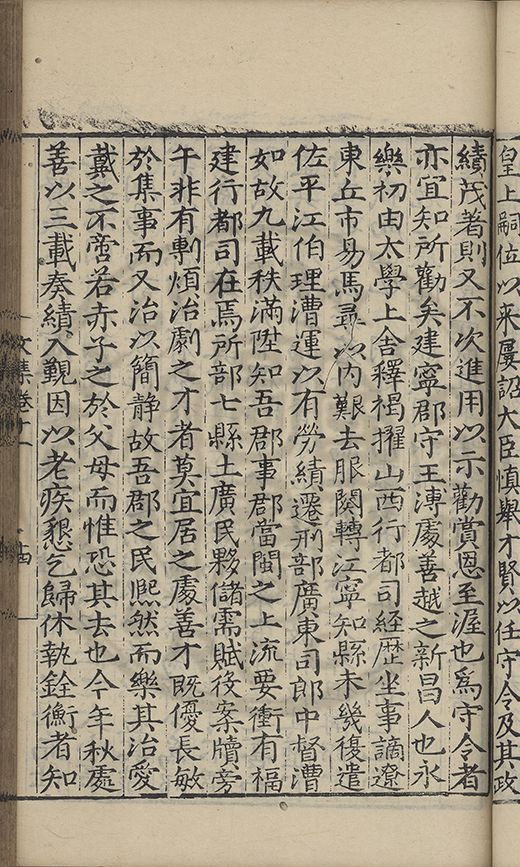 皇上嗣位以来屡詔大臣慎舉才賢以任守令及其政
績茂者則又不次進用以示勸賞恩至渥也爲守令者
亦宜知所勸矣建寧郡守王溥處善越之新昌人也永
樂初由太學上舍釋褐擢山西行都司經歷坐事謫遼
東丘市易馬尋以内艱去服闋轉江寧知縣未幾復遣
佐平江伯理漕運以有勞績遷刑部廣東司郎中督漕
如故九載秩滿陞知吾郡事郡當閩之上流要衝有福
建行都司在焉所部七縣土廣民夥儲需賦役案牘旁
午非有剸煩治劇之才者莫宜居之處善才既優長敏
於集事而又治以簡静故吾郡之民熈然而樂其治愛
戴之不啻若赤子之於父母而惟恐其去也今年秋處
善以三載奏績入覲因以老疾懇乞歸休執銓衡者知
文集卷十一